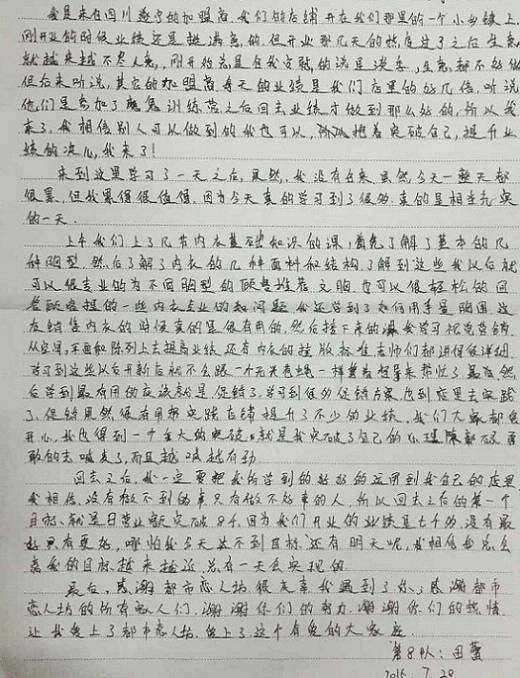 我是来自四川遂宁的加盟商，我们的店铺开在我们那里的一个小乡镇上，
刚开业的时候业绩还是挺满意的。但开业那几天的热度过了之后，生意
就越来越不尽人意，刚开始总是自我安慰的说是淡季，生意都不好做
但后来听说，其它的加盟商每天的业绩是我们店里的好几倍，听说
他们是参加了训练营之后回去业绩才做到那么好的，所以我
来了，我相信别人可以做到的我也可以，所以抱着突破自己，提升业
绩的决心，我来了！
来到这里学习了一天之后，果然，我没有白来，虽然今天一整天都
很累，但我累得很值得，因为今天真的学习到了很多，真的是相当充实
的一天。
上午我们上了几节内衣基础知识的课，首先了解了基本的几
种胸型，然后了解了内衣的几种面料和结构，了解到这些我以后就
可以很专业的为不同胸型的顾客推荐文胸，也可以很轻松的回
答顾客提的一些内衣专业的知识问题，我还学到了如何用手量胸围，这
在销售内衣的时候真的是很有用的，然后接下来的课我学习视觉营销
从空间，平面和陈列上去提高业绩，还有内衣的挂版标准，老师们都讲得很详细
学习到这些以后开新店就不会跟一个无头苍蝇一样等着督导来帮忙了，最后，然
后学到最有用的应该就是促销了，学习到很多促销方案，感到店里去实践
了，促销果然很有用，帮实践店铺提升了不少的业绩，我们大家都很
开心，我也得到一个重大的突破，就是我突破了自己的心理障碍，勇
敢的去喊麦了，而且越喊越有劲。
回去之后，我一定要把我所学到的好好的运用到我自己的店里，
我相信，没有做不到的事只有做不好事的人，所以回去之后的第一个
目标，就是日营业额突破8千，因为我们开业的业绩是七千多，没有最
好只有更好，哪怕我今天达不到目标，还有明天呢，我相信我总会
离我的目标越来越近，总有一天会实现的。
最后，感谢都市恋人坊，很庆幸我遇到了你，感谢都市
恋人坊的所有家人们，谢谢你们的努力，谢谢你们的热情，
让我爱上了都市恋人坊，爱上了这个有爱的大家庭。
第8队：田蕾
2016.7.28